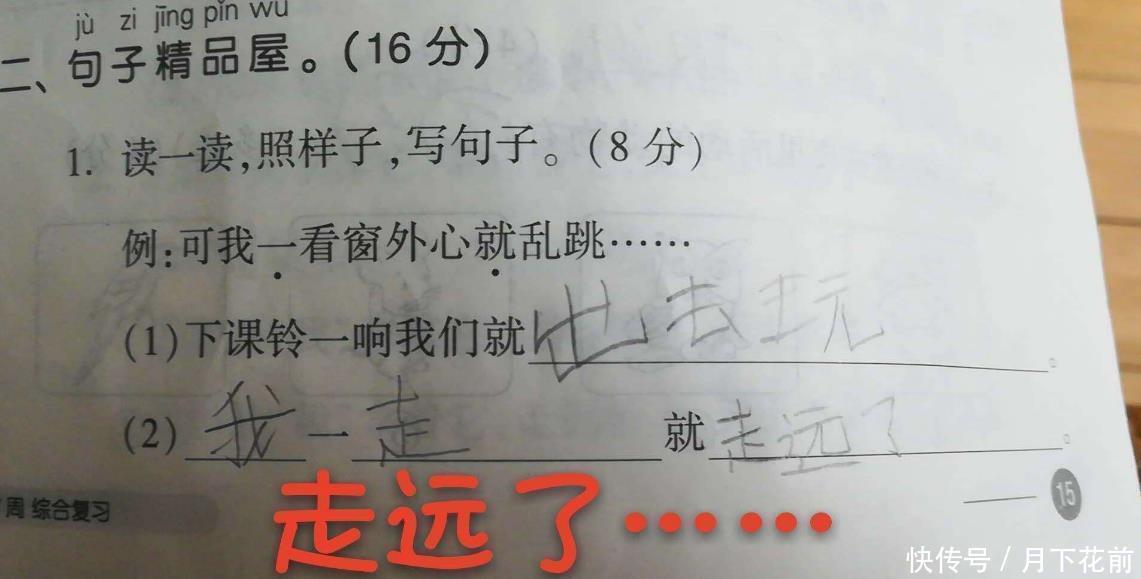 jù zi jīng pǐn wū
二、句子精品屋。(16分)
1. 读一读,照样子,写句子。(8分)
例:可我一看窗外心就乱跳……
(1)下课铃一响我们就出去玩。
(2)我一走就走远了。
走远了……
周 综合复习
15
快传号 / 月下花前